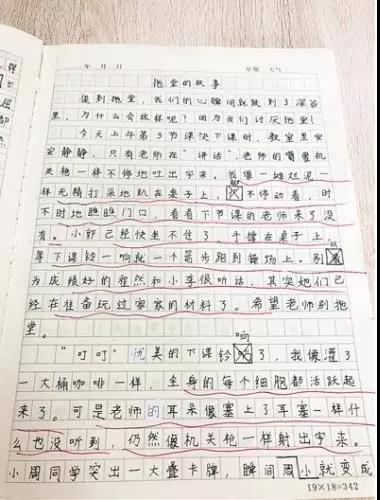 年 月 日 星期 天气
拖堂的故事
提到拖堂，我们的心瞬间就跌到了深谷
里，为什么会这样呢？因为我们讨厌拖堂！
今天上午第3节课快下课时，教室里安
安静静，只有老师在“讲话”，老师的嘴像机
关枪一样不停地吐出字来。我像一堆烂泥一
样无精打采地趴在桌子上，不停动着，时
不时地瞧瞧门口，看看下节课的老师来了没
有。小郭已经快坐不住了，手撑在桌子上，
等下课铃一响就一个箭步跑到操场上。别
为成绩好的崔然和小李很听话，其实她们已
经在准备玩过家家的材料了。希望老师别拖
堂。
“叮叮”优美的下课铃响了，我像灌了
一大桶咖啡一样，全身的每个细胞都活跃起
来了。可是老师的耳朵像塞上了耳塞一样什
么也没听到，仍然像机关枪一样射出字来。
小周同学突出一大叠卡牌，瞬间周小就变成
19×18=342